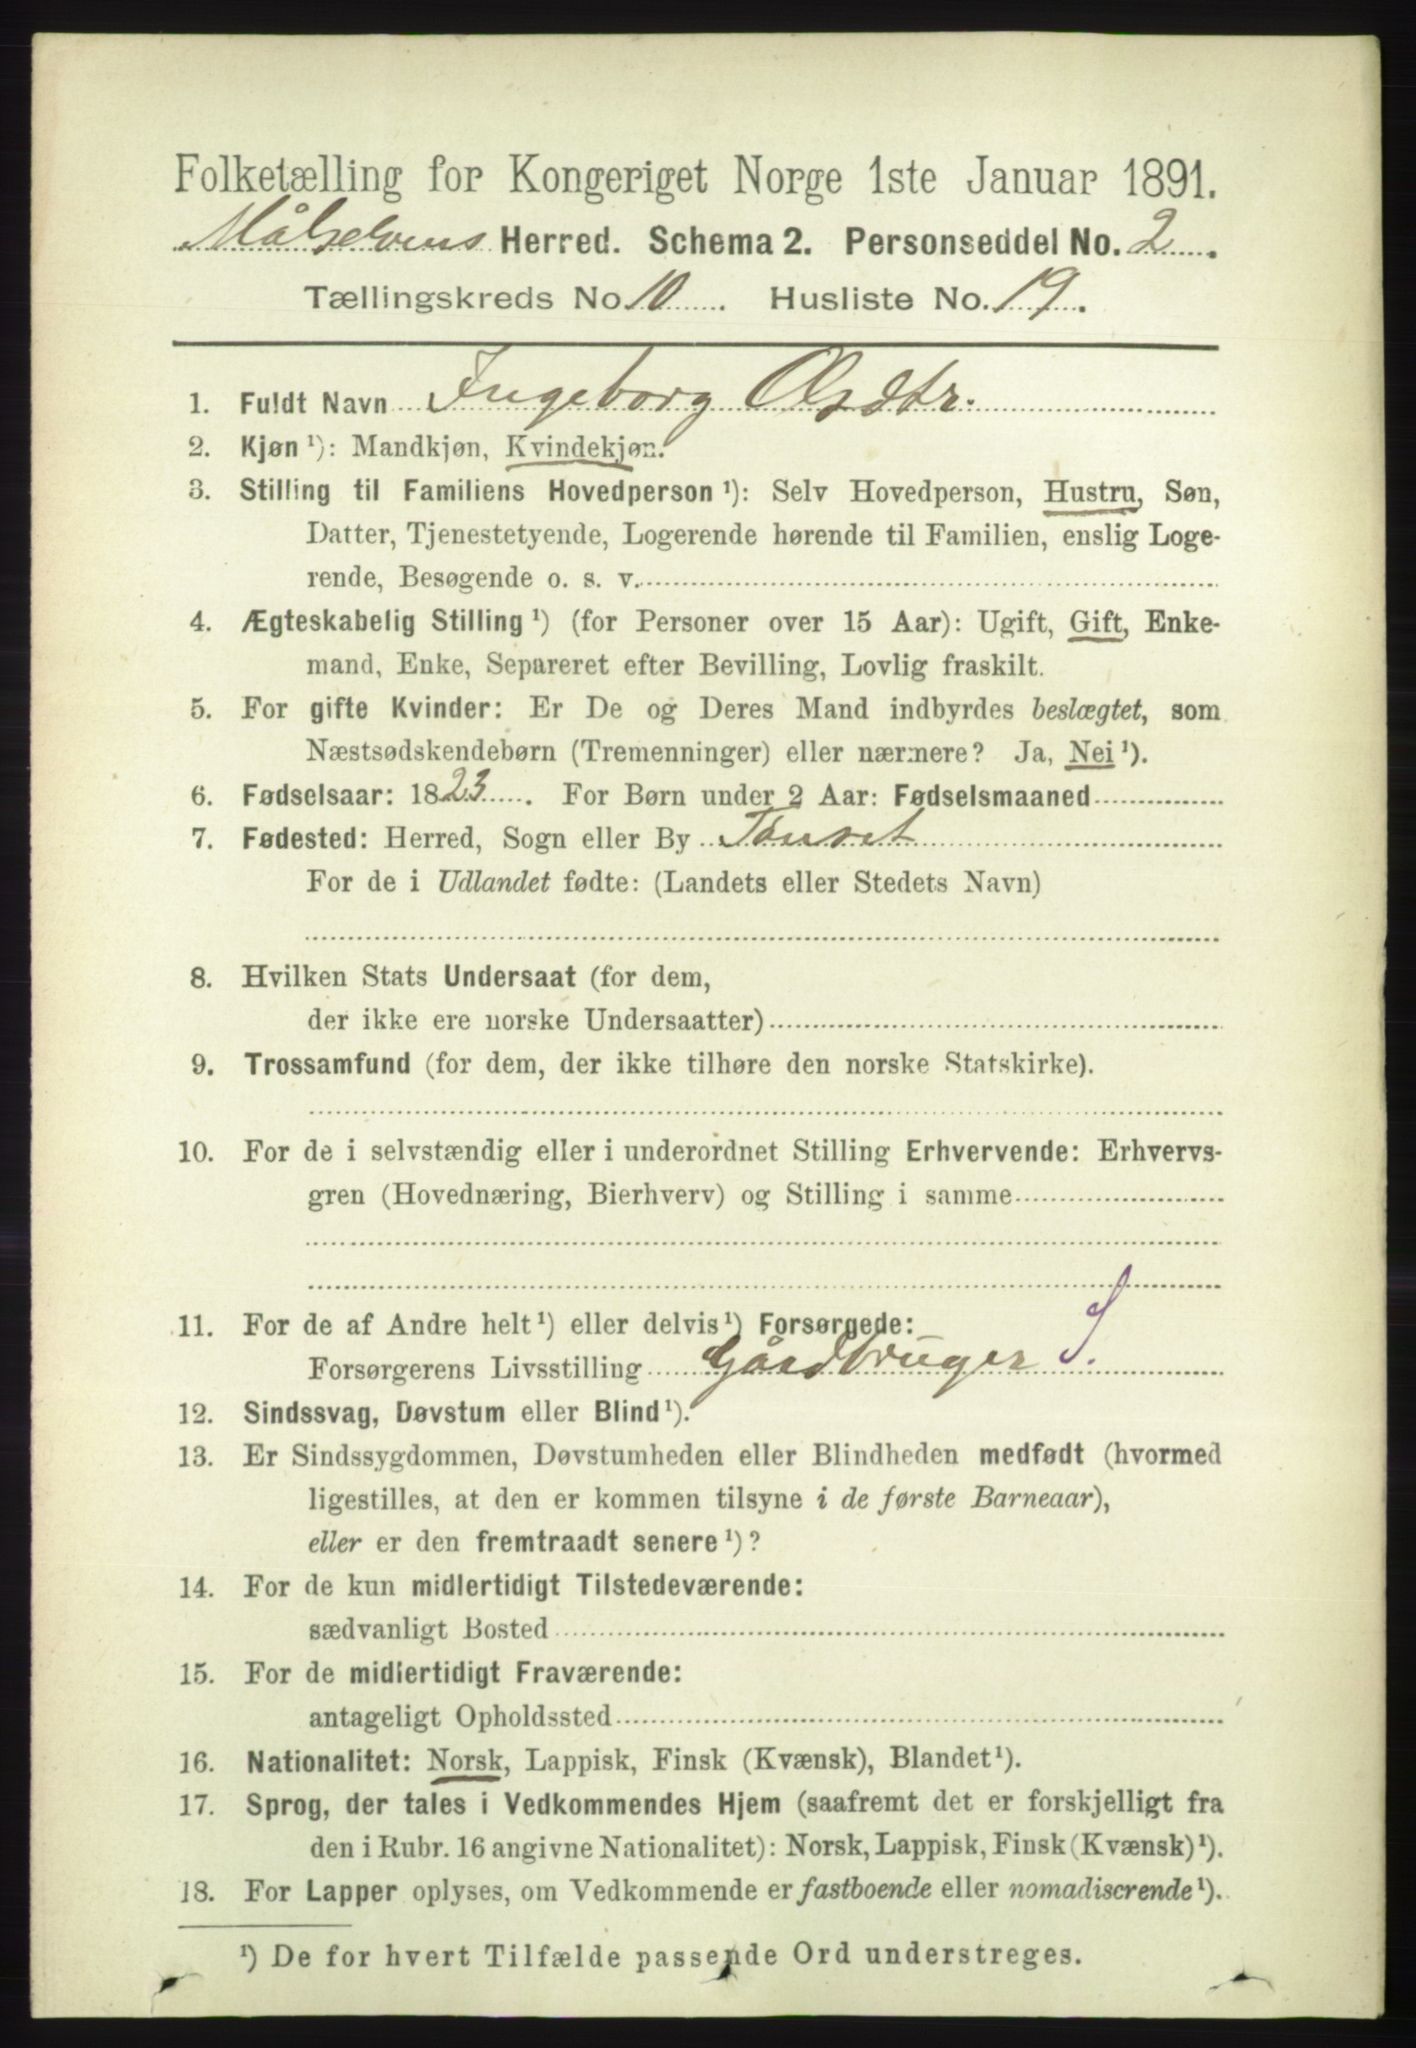 Folketælling for Kongeriget Norge 1ste Januar 1891.
Målselvens Herred. Schema 2. Personseddel No. 2.
Tællingskreds No 10. Husliste No. 19.
1. Fuldt Navn Ingeborg Olsdtr.
2. Kjøn ¹): Mandkjøn, Kvindekjøn.
3. Stilling til Familiens Hovedperson ¹): Selv Hovedperson, Hustru, Søn,
Datter, Tjenestetyende, Logerende hørende til Familien, enslig Loge-
rende, Besøgende o. s. v.
4. Ægteskabelig Stilling ¹) (for Personer over 15 Aar): Ugift, Gift, Enke-
mand, Enke, Separeret efter Bevilling, Lovlig fraskilt.
5. For gifte Kvinder: Er De og Deres Mand indbyrdes beslægtet, som
Næstsødskendebørn (Tremenninger) eller nærmere? Ja, Nei ¹).
6. Fødselsaar: 1823. For Børn under 2 Aar: Fødselsmaaned
7. Fødested: Herred, Sogn eller By Tønset
For de i Udlandet fødte: (Landets eller Stedets Navn)
8. Hvilken Stats Undersaat (for dem,
der ikke ere norske Undersaatter)
9. Trossamfund (for dem, der ikke tilhøre den norske Statskirke).
10. For de i selvstændig eller i underordnet Stilling Erhvervende: Erhvervs-
gren (Hovednæring, Bierhverv) og Stilling i samme
11. For de af Andre helt ¹) eller delvis ¹) Forsørgede:
Forsørgerens Livsstilling Gårdbruger S.
12. Sindssvag, Døvstum eller Blind ¹).
13. Er Sindssygdommen, Døvstumheden eller Blindheden medfødt (hvormed
ligestilles, at den er kommen tilsyne i de første Barneaar),
eller er den fremtraadt senere ¹)?
14. For de kun midlertidigt Tilstedeværende:
sædvanligt Bosted
15. For de midlertidigt Fraværende:
antageligt Opholdssted
16. Nationalitet: Norsk, Lappisk, Finsk (Kvænsk), Blandet ¹).
17. Sprog, der tales i Vedkommendes Hjem (saafremt det er forskjelligt fra
den i Rubr. 16 angivne Nationalitet): Norsk, Lappisk, Finsk (Kvænsk) ¹).
18. For Lapper oplyses, om Vedkommende er fastboende eller nomadiserende ¹).
¹) De for hvert Tilfælde passende Ord understreges.